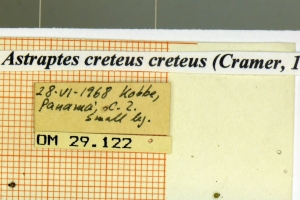 Astraptes creteus creteus (Cramer, 1
28-VI-1968 Kobbe,
Panamá, C. Z.
Small leg.
OM 29.122